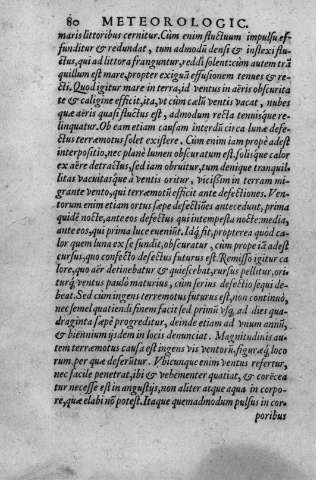 80 METEOROLOGIC.
maris littoribus cernitur. Cùm enim fluctuum impulsu ef-
funditur & redundat, tum admodũ densi & inflexi flu-
ctus, qui ad littora franguntur, reddi solent: cùm autem trã
quillum est mare, propter exiguã effusionem tenues & re-
cti. Quod igitur mare in terra, id ventus in aëris obscurita
te & caligine efficit, ita, vt cùm cælũ ventis vacat, nubes
quæ aëris quasi fluctus est, admodum recta tenuisque re-
linquatur. Ob eam etiam causam interdũ circa lunæ defe-
ctus terræmotus solet existere. Cùm enim iam propè adest
interpositio, nec planè lumen obscuratum est. solisq́ue calor
ex aëre detractus, sed iam obruitur, tum denique tranquil
litas vacuitasq́ue à ventis oritur, vicissim in terram mi-
grante vento, qui terræmotũ efficit ante defectiones. Ven
torum enim etiam ortus sæpe defectiões antecedunt, prima
quidẽ nocte, ante eos defectus qui intempesta nocte: media,
ante eos, qui prima luce eueniũt. Idq́; fit, propterea quòd ca
lor quem luna ex se fundit, obscuratur, cùm prope iã adest
cursus, quo confecto defectus futurus est. Remisso igitur ca
lore, quo aër detinebatur & quiescebat, rursus pellitur, ori
turq́; ventus paulò maturius, cùm serius defectio, sequi de-
beat. Sed cum ingens terremotus futurus est, non continuò,
nec semel quatiendi finem facit sed primũ vsq; ad dies qua
draginta sæpè progreditur, deinde etiam ad vnum annũ,
& biennium ijsdem in locis denunciat. Magnitudinis au-
tem terræmotus causa est ingens vis ventorũ, figuræq́; loco
rum, per quæ deferũtur. Vbicunque enim ventus refertur,
nec facilè penetrat, ibi & vehementer quatiat, & coërcea
tur necesse est in angustijs, non aliter atque aqua in corpo-
re, quæ elabi nõ potest. Itaque quemadmodum pulsus in cor
poribus